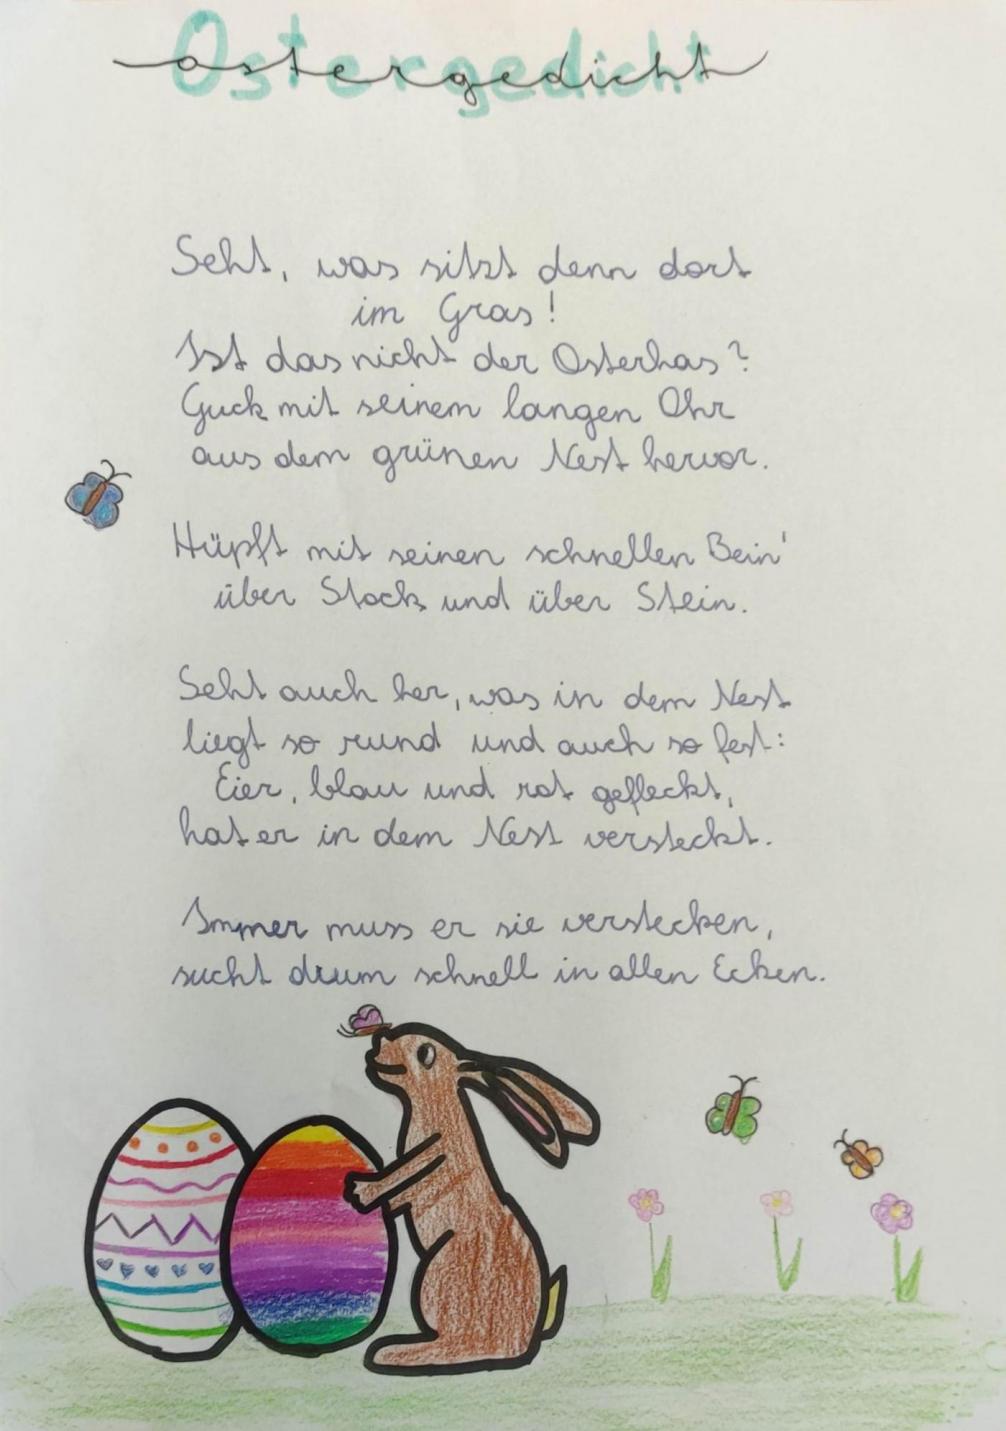 Ostergedicht
Seht, was sitzt denn dort
im Gras!
Ist das nicht der Osterhas?
Guck mit seinem langen Ohr
aus dem grünen Nest hervor.
Hüpft mit seinen schnellen Bein'
über Stock und über Stein.
Seht auch her, was in dem Nest
liegt so rund und auch so fest:
Eier, blau und rot gefleckt,
hat er in dem Nest versteckt.
Immer muss er sie verstecken,
sucht drum schnell in allen Ecken.